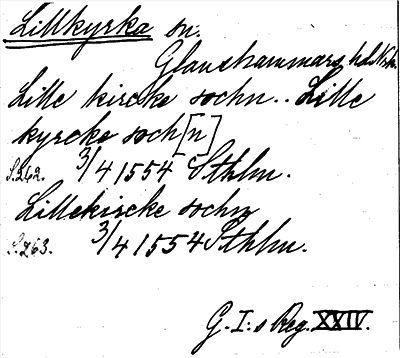 Lillkyrka sn.
Glanshammars hd. Nrk.
Lille kircke sochn.. Lille
kyrcke soch[n]
S.262. 3/4 1554 Sthlm.
Lillekircke sochn
S.263. 3/4 1554 Sthlm.
G.I:s Reg. XXIV.